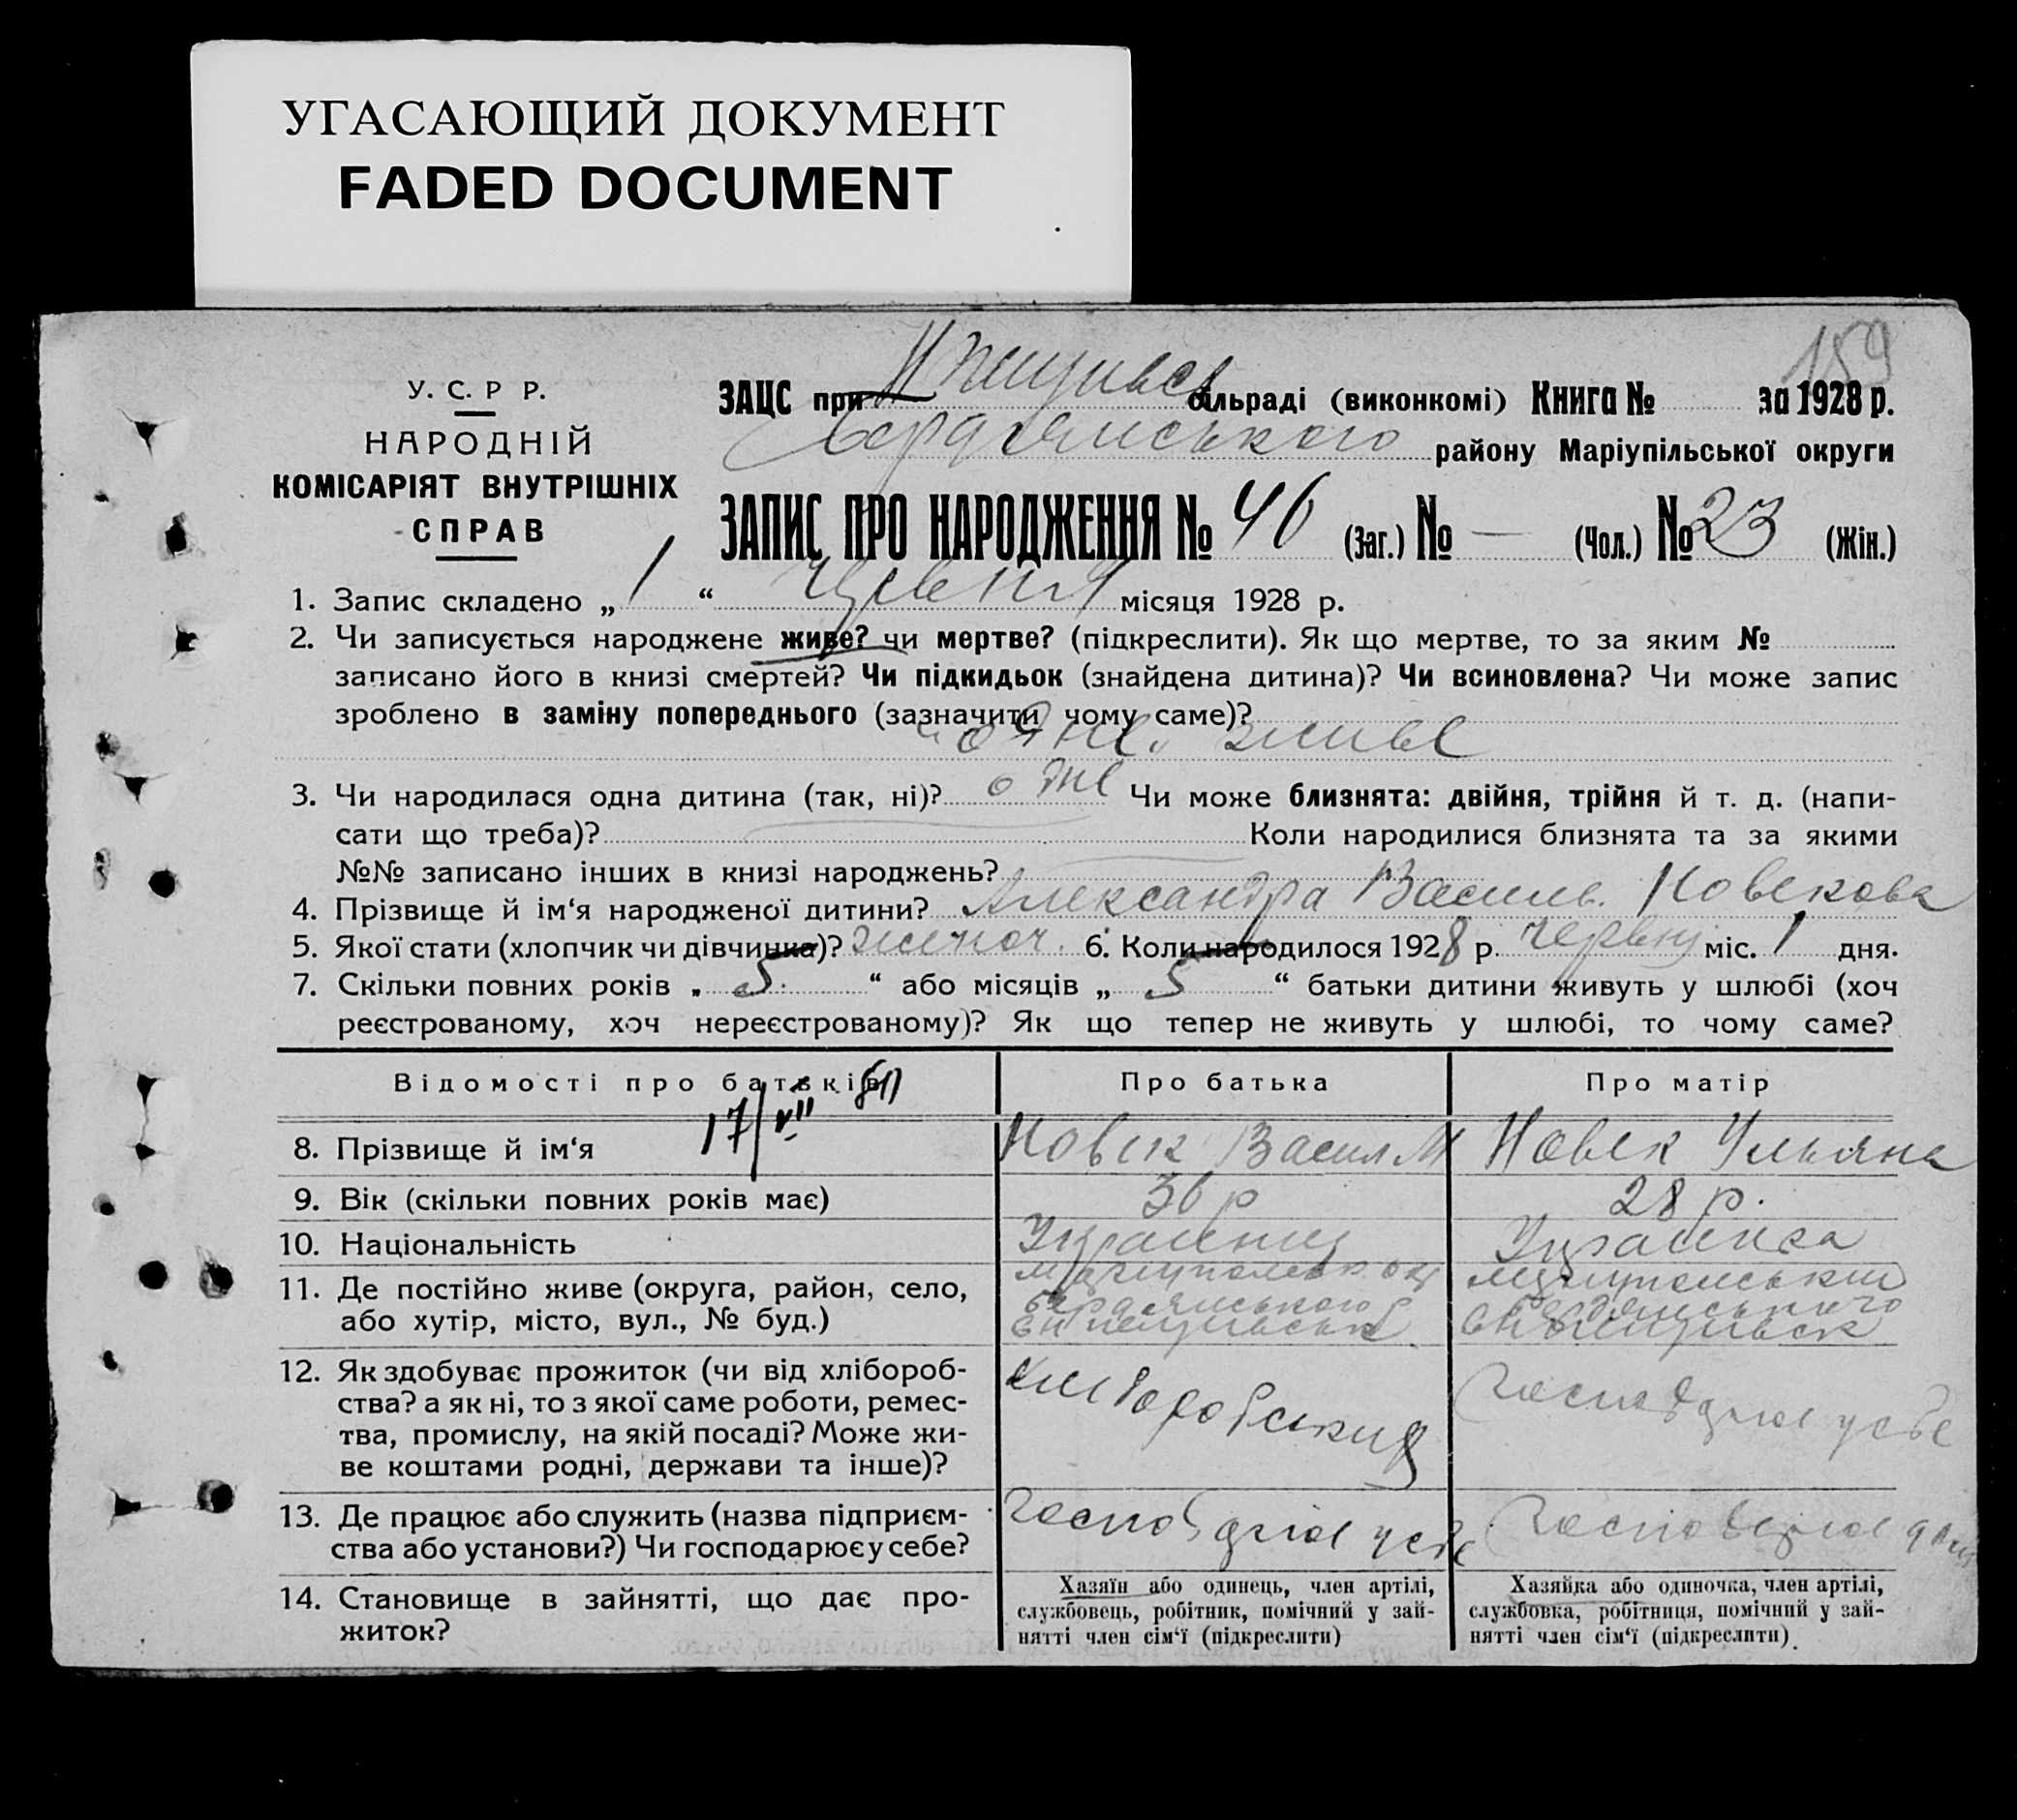 УГАСАЮЩИЙ ДОКУМЕНТ
FADED DOCUMENT
159
У. С. Р Р.
НАРОДНІЙ
КОМІСАРІЯТ ВНУТРІШНІХ
СПРАВ
ЗАЦС при сільраді (виконкомі) Книга № за 1928 р.
Бердянського району Маріупільської округи
ЗАПИС ПРО НАРОДЖЕННЯ № 46 (Заг.) № — (Чол.) № 23 (Жін.)
1. Запис складено „ 1 “ червня місяця 1928 р.
2. Чи записується народжене живе? чи мертве? (підкреслити). Як що мертве, то за яким №
записано його в книзі смертей? Чи підкидьок (знайдена дитина)? Чи всиновлена? Чи може запис
зроблено в заміну попереднього (зазначити чому саме)?
живе
3. Чи народилася одна дитина (так, ні)? Чи може близнята: двійня, трійня й т. д. (напи-
сати що треба)? Коли народилися близнята та за якими
№№ записано інших в книзі народжень?
4. Прізвище й ім‘я народженої дитини? Александра Василь. Новекова
5. Якої стати (хлопчик чи дівчинка)? жіноч. 6. Коли народилося 1928 р. червня міс. 1 дня.
7. Скільки повних років „ 5 “ або місяців „ 5 “ батьки дитини живуть у шлюбі (хоч
реєстрованому, хоч нереєстрованому)? Як що тепер не живуть у шлюбі, то чому саме?
Відомості про батьків
Про батька
Про матір
17/VII
8. Прізвище й ім‘я
Новек Васил М
Новек Ульяна
9. Вік (скільки повних років має)
36 р
28 р.
10. Національність
Українец
Українка
11. Де постійно живе (округа, район, село,
або хутір, місто, вул., № буд.)
Маріупольск. окр
Бердянського
Маріупольський
Бердянського
12. Як здобуває прожиток (чи від хлібороб-
ства? а як ні, то з якої саме роботи, ремес-
тва, промислу, на якій посаді? Може жи-
ве коштами родні, держави та інше)?
господарює у себе
13. Де працює або служить (назва підприєм-
ства або установи?) Чи господарює у себе?
господарює у себе
господарює
14. Становище в зайнятті, що дає про-
житок?
Хазяїн або одинець, член артілі,
службовець, робітник, помічний у зай-
нятті член сім‘ї (підкреслити)
Хазяйка або одиночка, член артілі,
службовка, робітниця, помічний у зай-
нятті член сім‘ї (підкреслити).